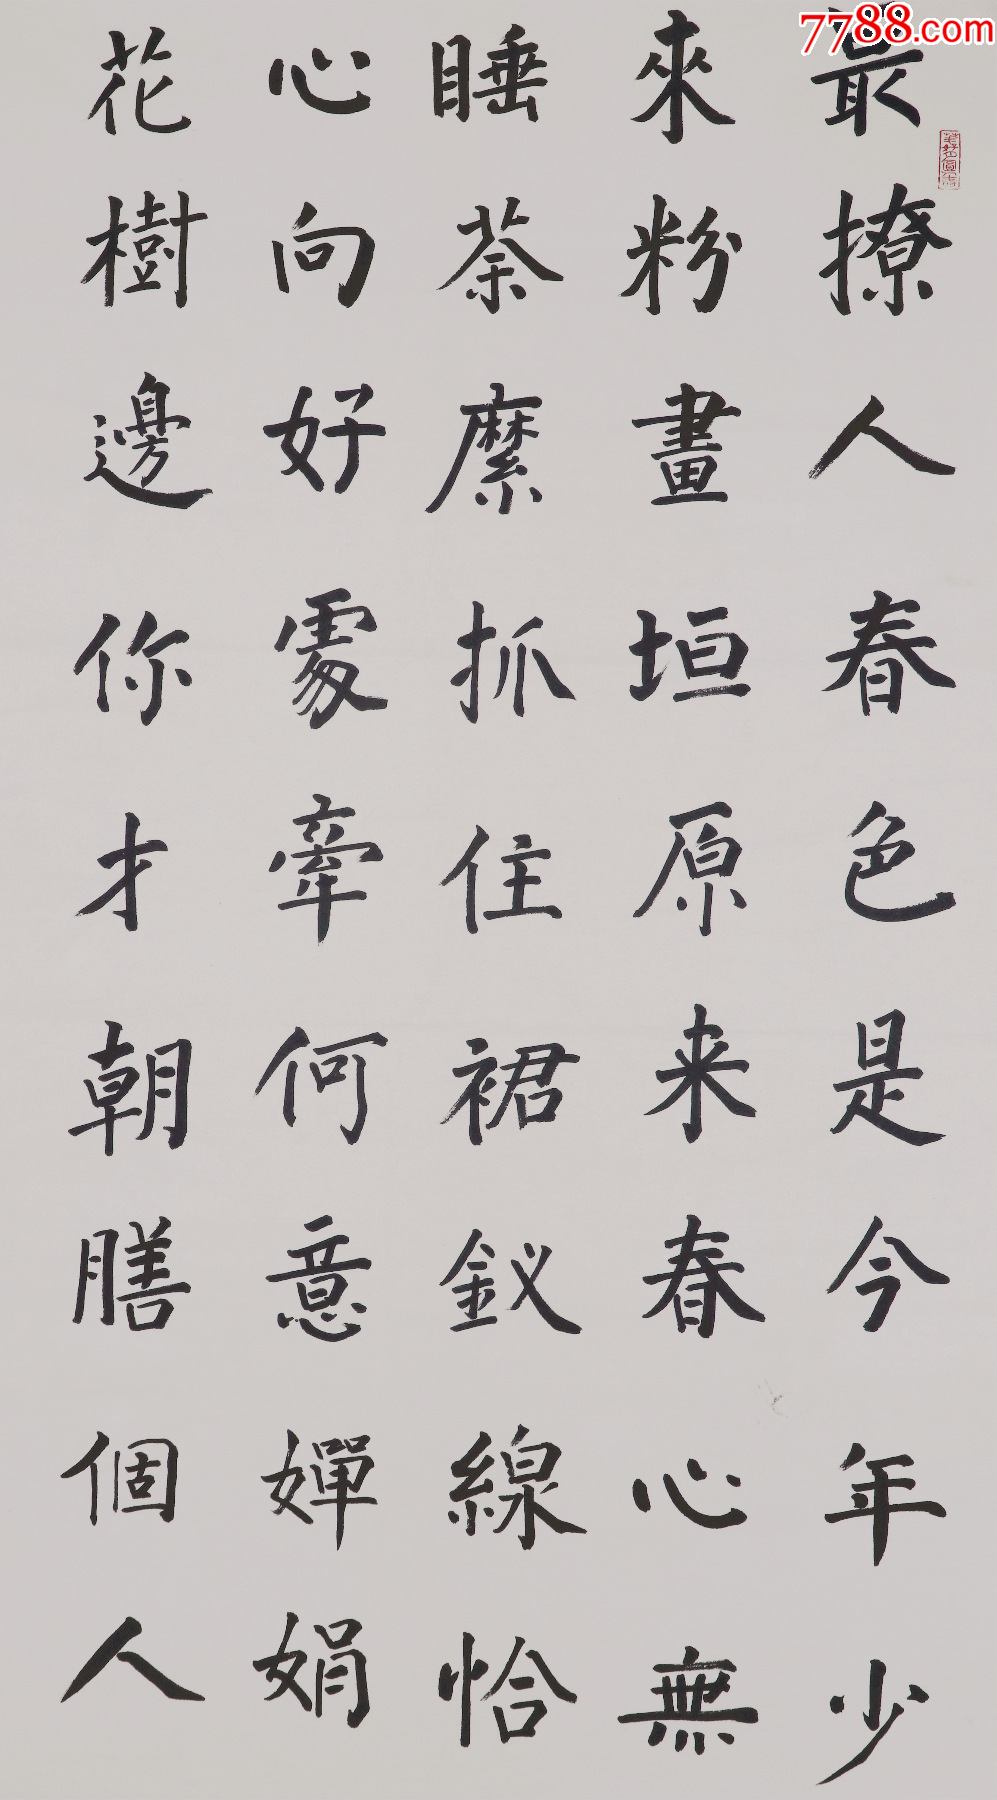 7788.com
最撩人春色是今年少
來粉畫垣原来春心無
睡荼縻抓住裙釵線恰
心向好處牽何意嬋娟
花樹邊你才朝膳個人